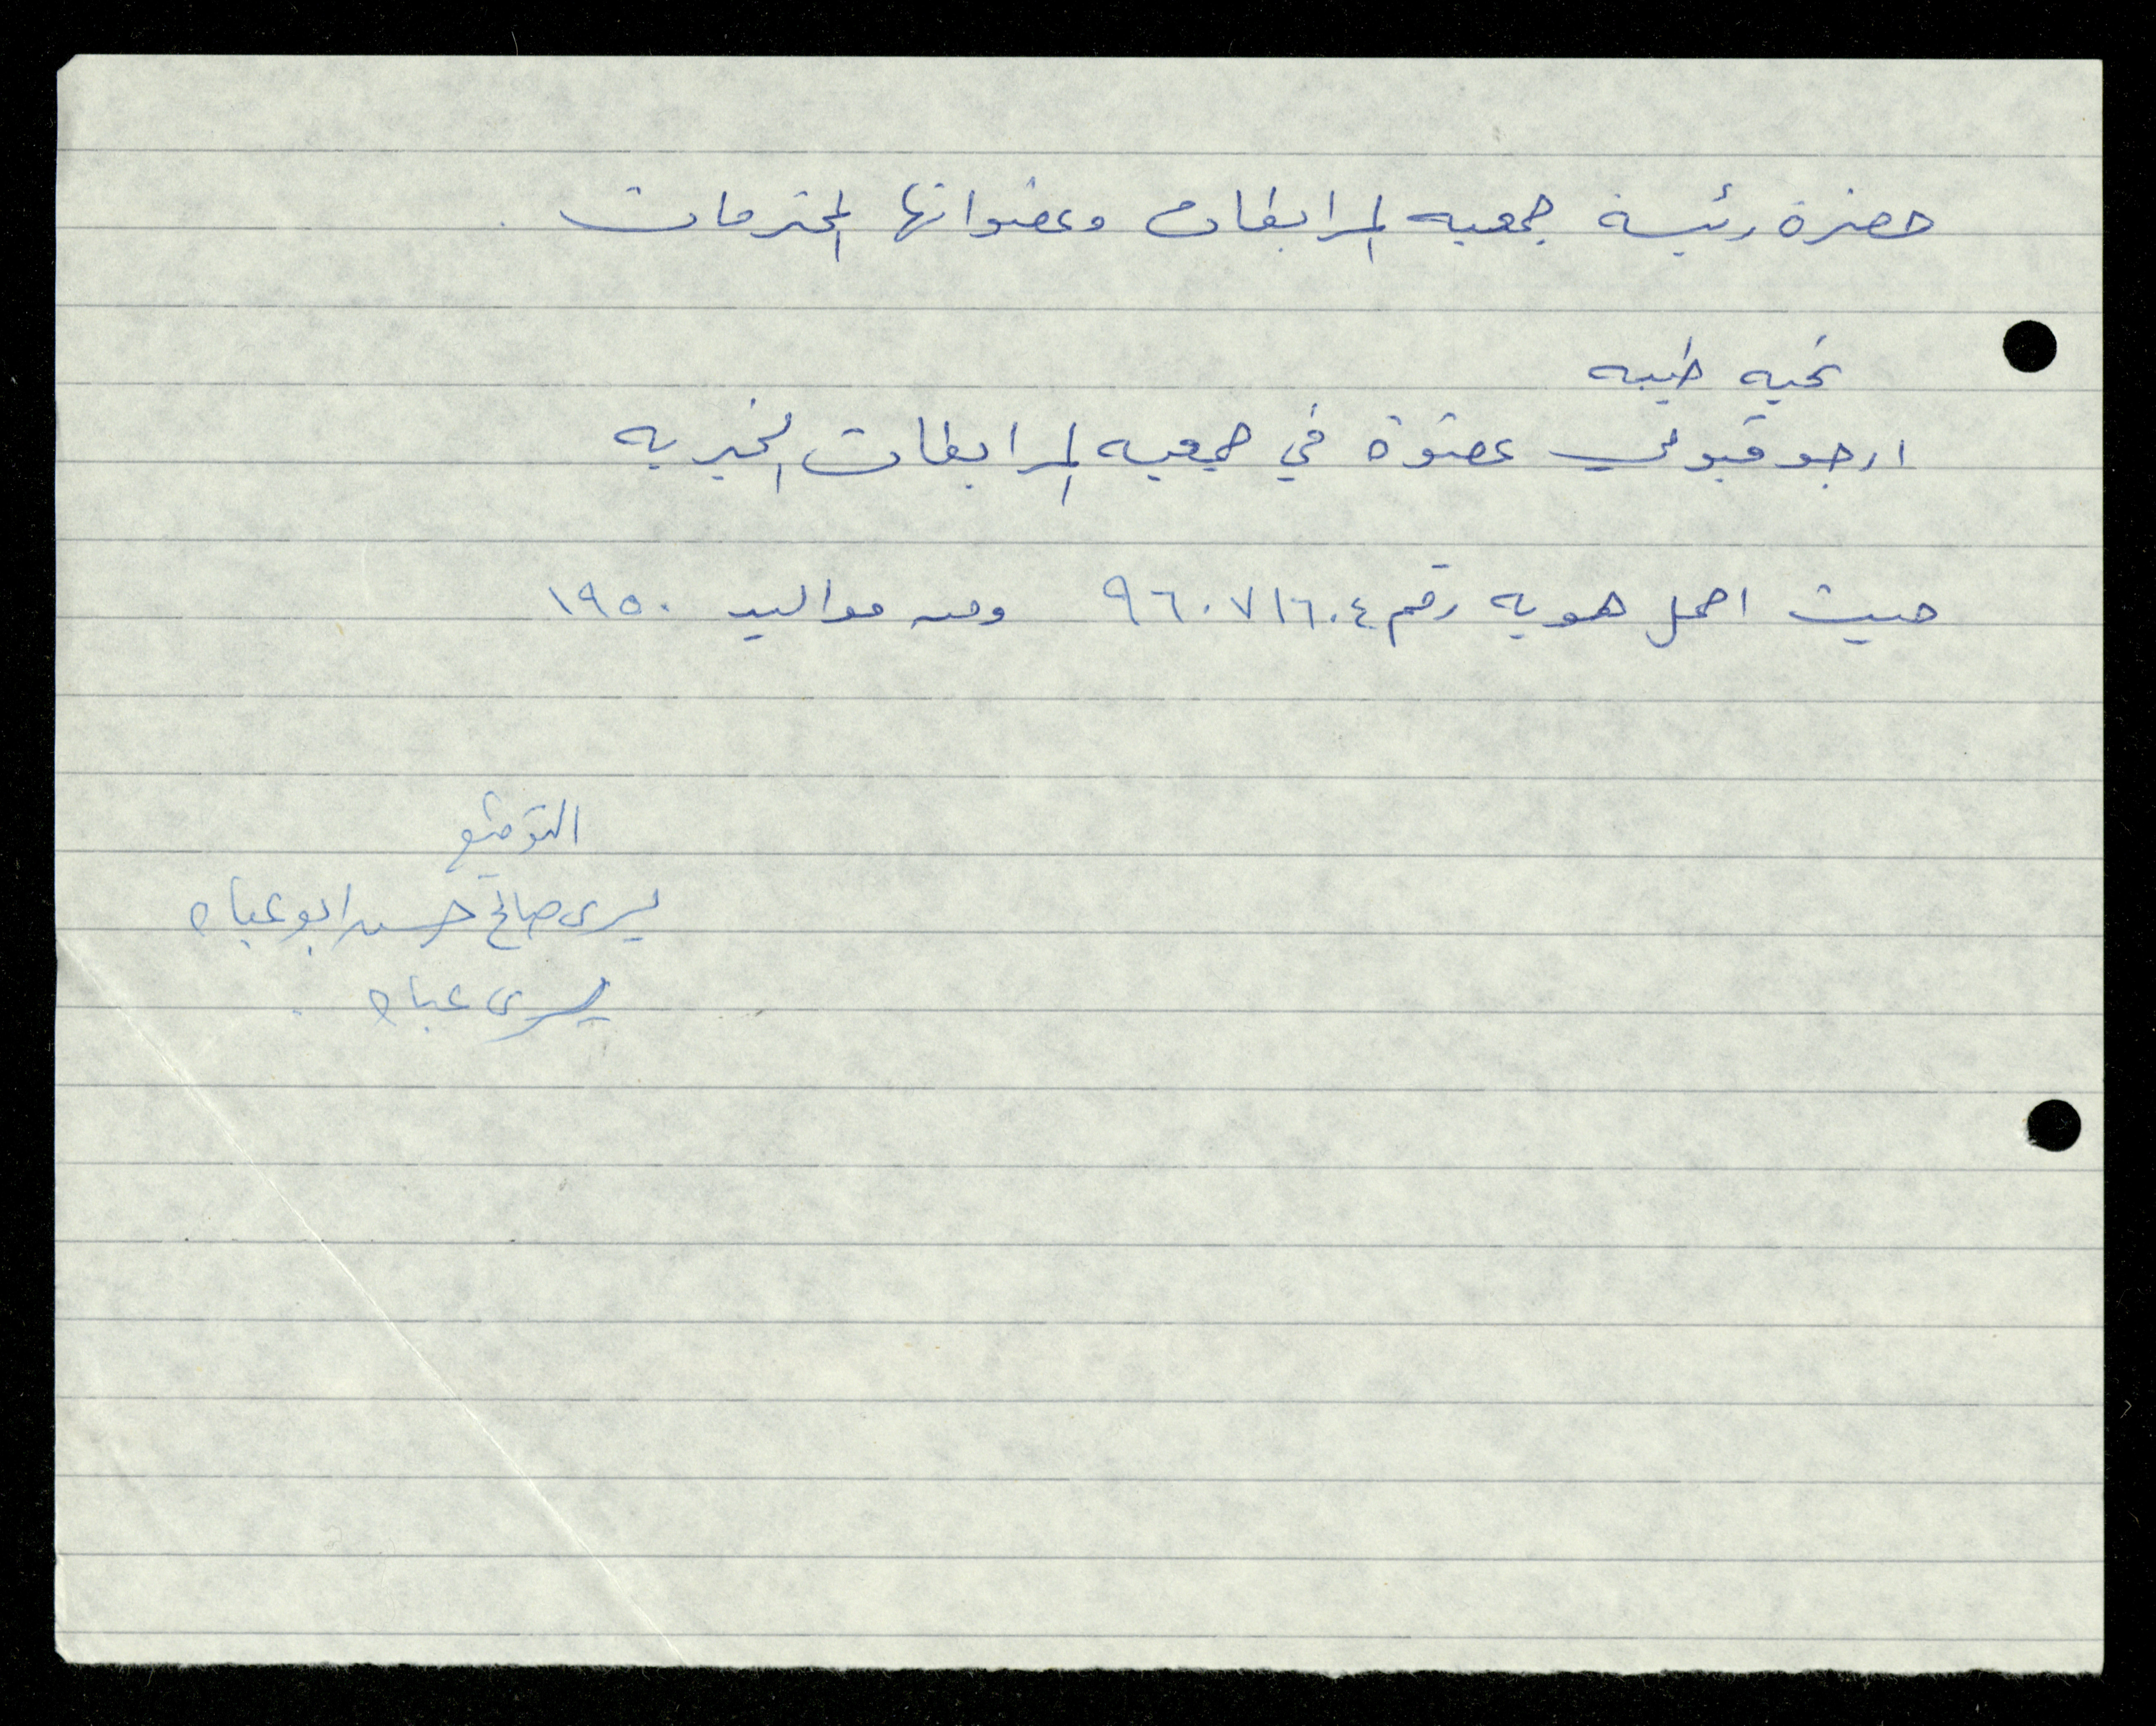 حضرة رئيسة جمعيه المرابطات وعضواتها المحترمات .
تحيه طيبه
ارجو قبولي عضوة في جمعيه المرابطات الخيريه
حيث احمل هويه رقم ٩٦٠٧١٦٠٤ ومن مواليد ١٩٥٠
التوقيع
يسرى صالح حسن ابو عباه
يسرى عباه .